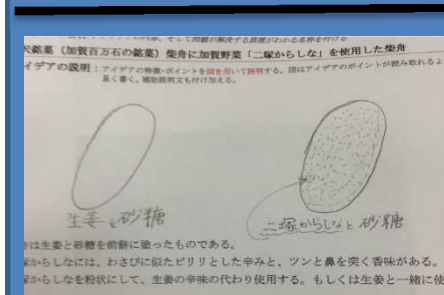 銘菓（加賀百万石の銘菓）柴舟に加賀野菜「二塚からしな」を使用した柴舟
イデアの説明：アイデアの特徴・ポイントを図を用いて説明する。図はアイデアのポイントが読み取れるよ
易く書く。補助説明文も付け加える。
生姜と砂糖
二塚からしなと砂糖
は生姜と砂糖を煎餅に塗ったものである。
からしなには、わさびに似たピリリとした辛みと、ツンと鼻を突く香味がある。
からしなを粉状にして、生姜の辛味の代わり使用する。もしくは生姜と一緒に使